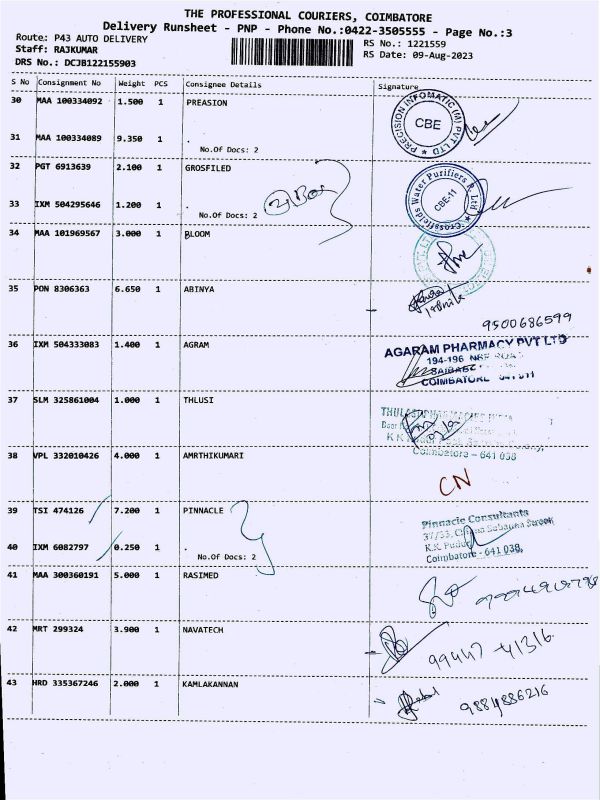 THE PROFESSIONAL COURIERS, COIMBATORE
Delivery Runsheet - PNP - Phone No.:0422-3505555 - Page No.:3
Route: P43 AUTO DELIVERY
RS No.: 1221559
Staff: RAJKUMAR
RS Date: 09-Aug-2023
DRS No.: DCJB122155903
S No Consignment No Weight PCS Consignee Details Signature
30 MAA 100334092 1.500 1 PREASION
PRECISION INFOMATIC (M) PVT LTD
CBE
31 MAA 100334089 9.350 1 .
No.Of Docs: 2
32 PGT 6913639 2.100 1 GROSFILED
Crossfields Water Purifiers P. Ltd
CBE-11
33 IXM 504295646 1.200 1 .
No.Of Docs: 2
34 MAA 101969567 3.000 1 BLOOM
35 PON 8306363 6.650 1 ABINYA
9500686599
36 IXM 504333083 1.400 1 AGRAM
AGARAM PHARMACY PVT LTD
194-196
COIMBATORE
37 SLM 325861004 1.000 1 THLUSI
Coimbatore - 641 038
38 VPL 332010426 4.000 1 AMRTHIKUMARI
CN
39 TSI 474126 7.200 1 PINNACLE
Pinnacle Consultants
40 IXM 6082797 0.250 1 .
No.Of Docs: 2
Coimbatore - 641 038,
41 MAA 300360191 5.000 1 RASIMED
42 MRT 299324 3.900 1 NAVATECH
99447-41316
43 HRD 335367246 2.000 1 KAMLAKANNAN
9884886216